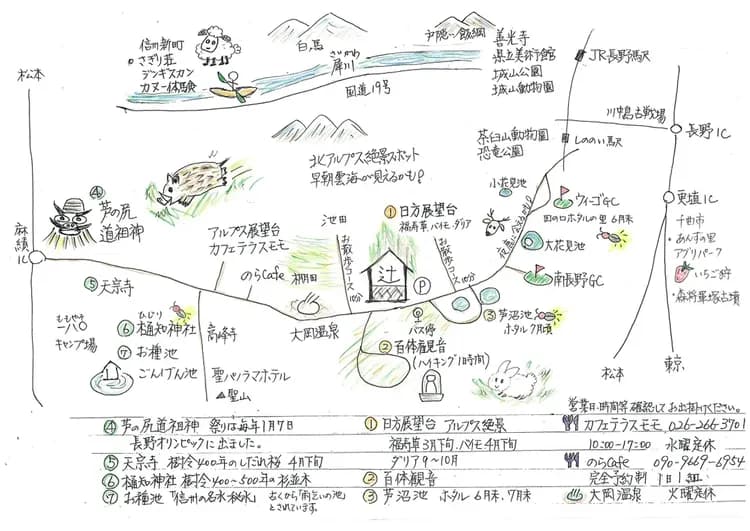 信州新町
さぎり荘
ジンギスカン
カヌー体験
白馬
さいがわ
犀川
国道19号
戸隠〜飯綱
善光寺
県立美術館
城山公園
城山動物園
JR長野駅
川中島古戦場
長野IC
茶臼山動物園
恐竜公園
しののい駅
松本
北アルプス絶景スポット
早朝雲海が見えるかも!
④芦の尻
道祖神
麻績IC
アルプス展望台
カフェテラスモモ
のらCafe
池田
棚田
お散歩コース
10分
①日方展望台
福寿草、バイモ、ダリア
辻
P
お散歩コース
10分
小花見池
ウィーゴGC
田のロホタルの里 6月末
大花見池
南長野GC
更埴IC
千曲市
・あんずの里
アグリパーク
いちご狩
・森将軍塚古墳
⑤天宗寺
ももやま
一八〇
キャンプ場
ひじり
⑥樋知神社
⑦お種池
ごんげん池
高峰寺
聖パノラマホテル
聖山
大岡温泉
バス停
②百体観音
(ハイキング1時間)
③芦沼池
ホタル7月頃
松本
東京
営業日・時間等確認してお出掛けください。
④芦の尻道祖神 祭りは毎年1月7日
長野オリンピックに出ました。
⑤天宗寺 樹令400年のしだれ桜 4月下旬
⑥樋知神社 樹令400〜500年の杉並木
⑦お種池「信州の名水秘水」 古くから「雨乞いの池」
とされています。
①日方展望台 アルプス絶景
福寿草3月下旬、バイモ4月下旬
ダリア9〜10月
②百体観音
③芦沼池 ホタル 6月末、7月末
カフェテラスモモ 026-266-3701
10:00-17:00 水曜定休
のらCafe 090-9669-6954
完全予約制 1日1組
大岡温泉 火曜定休